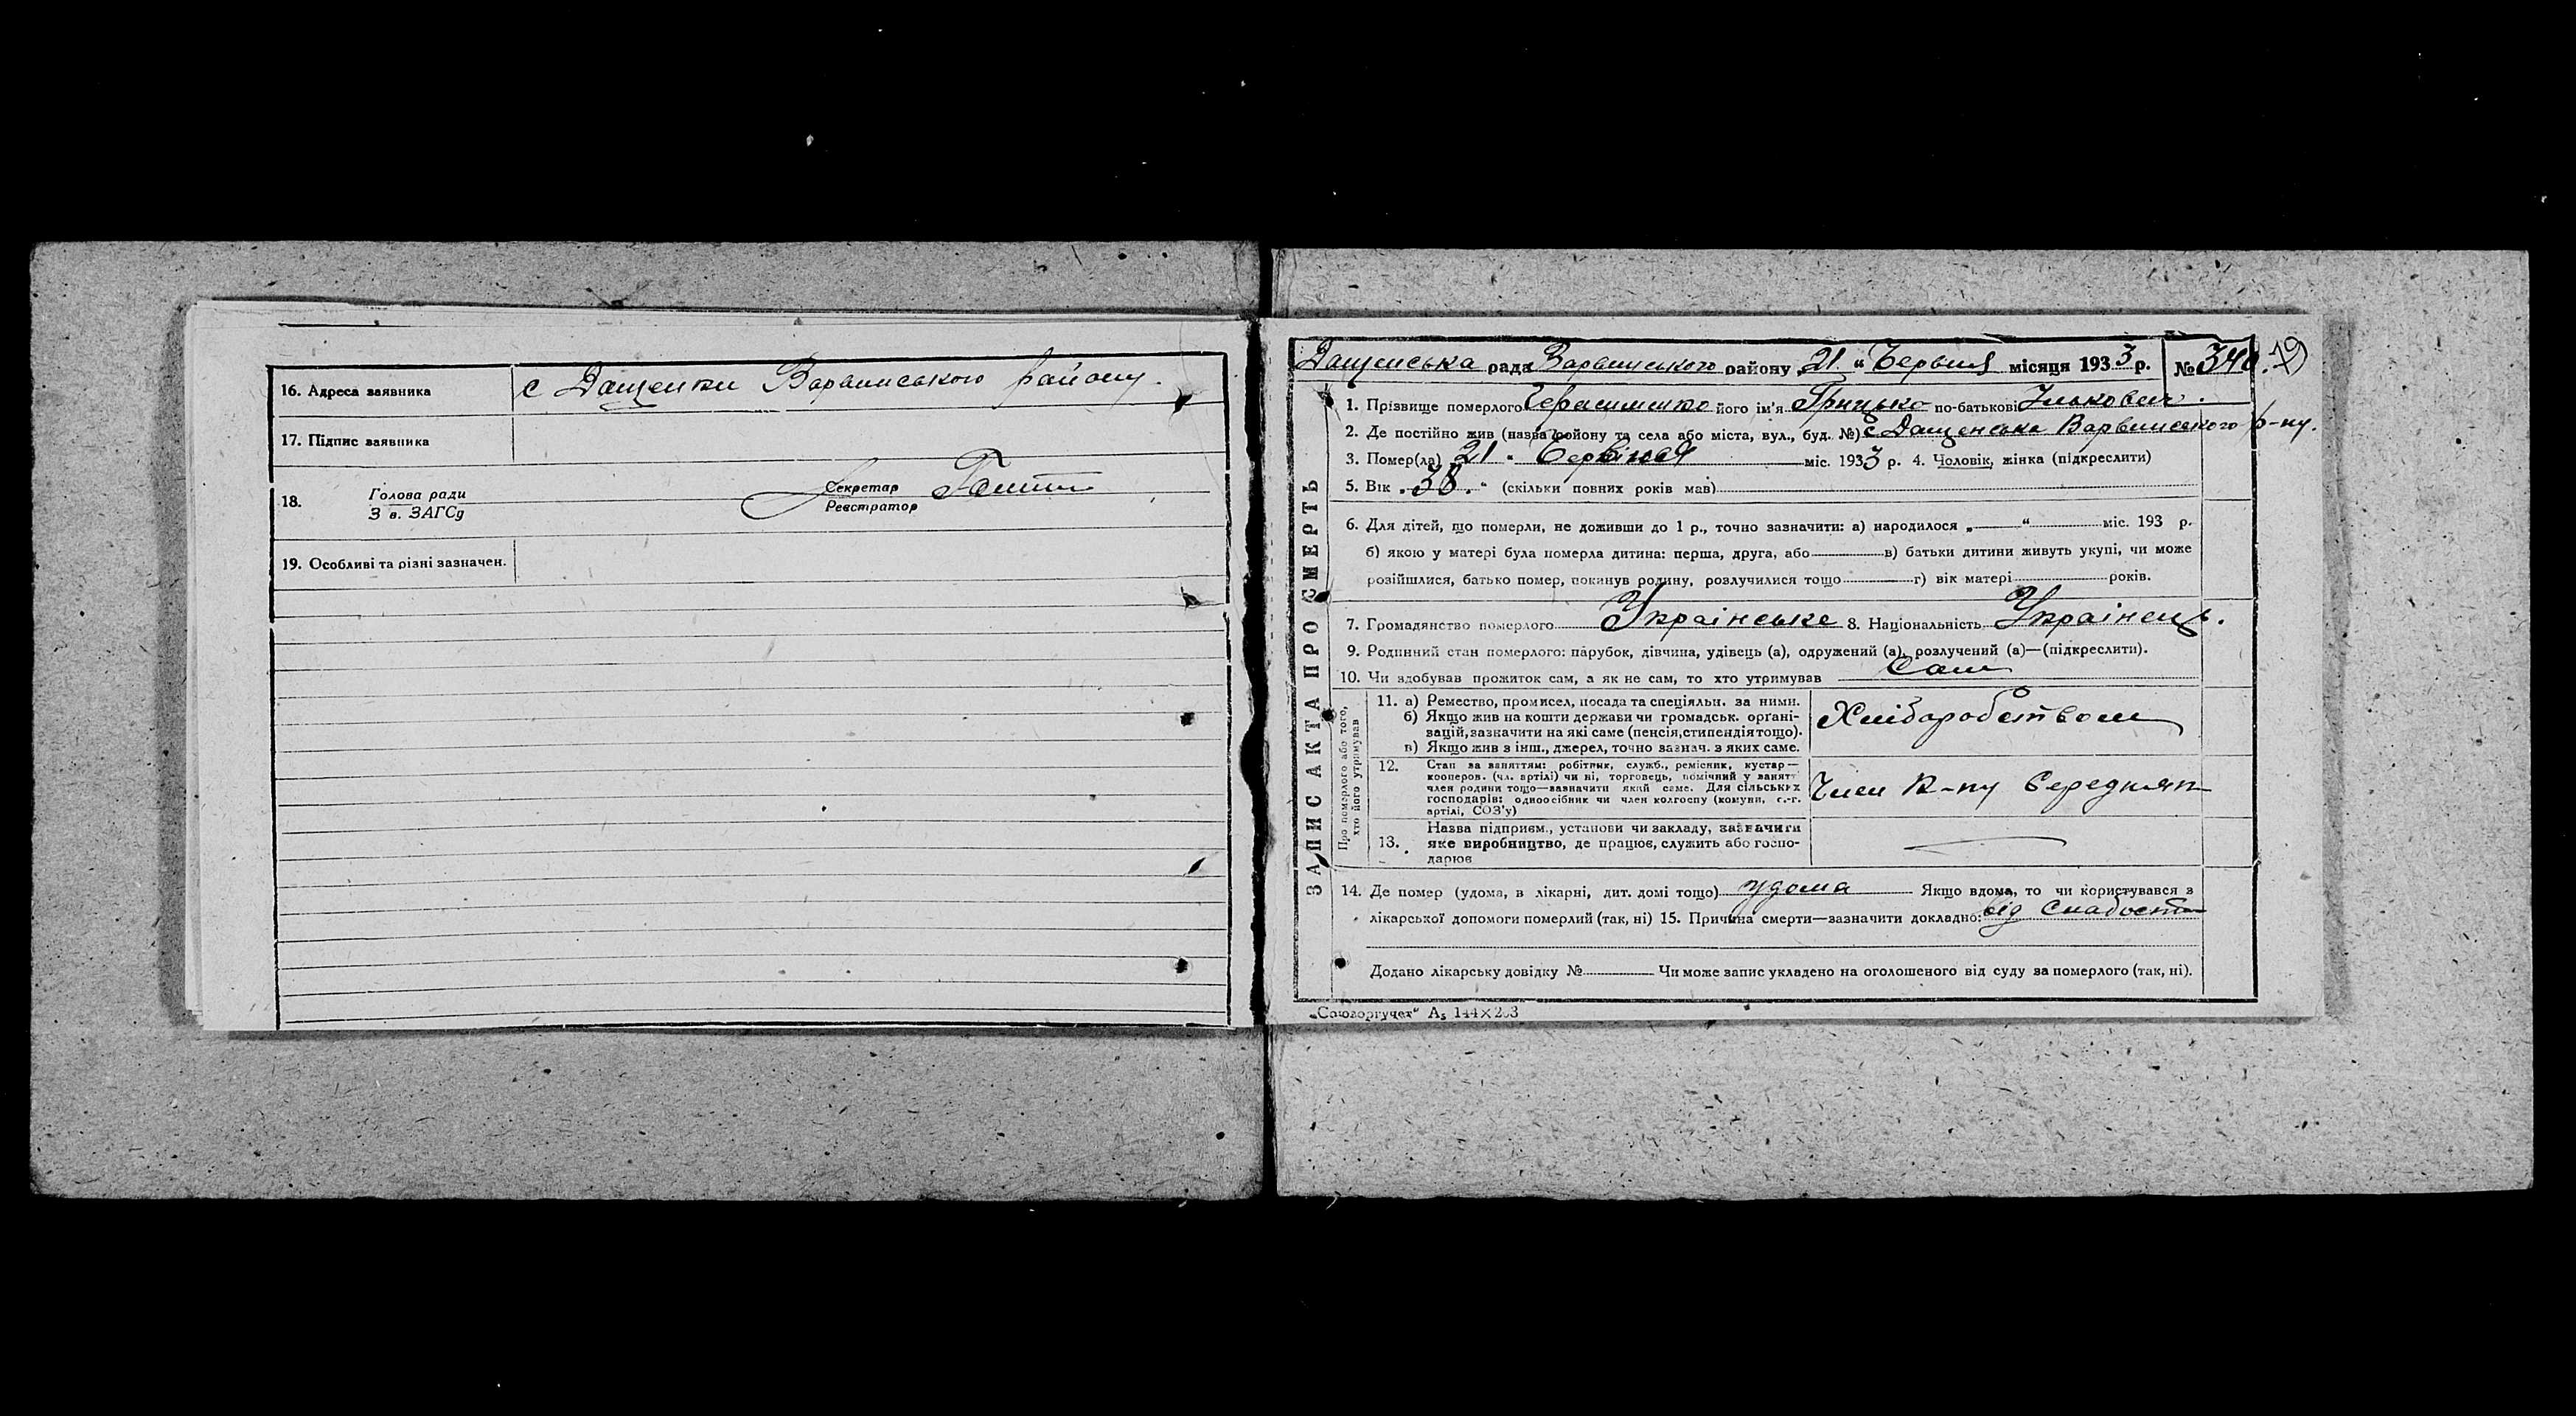 16. Адреса заявника с Дащенки Варвинського району.
17. Підпис заявника
18. Голова ради
З в. ЗАГСу
Секретар
Реєстратор
19. Особливі та різні зазначен.
ЗАПИС АКТА ПРО СМЕРТЬ
Дащенська рада Варвинського району „21“ Червня місяця 1933 р. № 340. 19
1. Прізвище померлого Герасименко його ім'я Грицько по-батькові Ількович.
2. Де постійно жив (назва району та села або міста, вул., буд. №) с Дащенське Варвинського р-ну.
3. Помер(ла) 21 " Червіня міс. 1933 р. 4. Чоловік, жінка (підкреслити)
5. Вік „38.“ (скільки повних років мав)
6. Для дітей, що померли, не доживши до 1 р., точно зазначити: а) народилося „—“ міс. 193 р.
б) якою у матері була померла дитина: перша, друга, або — в) батьки дитини живуть укупі, чи може
розійшлися, батько помер, покинув родину, розлучилися тощо — г) вік матері — років.
7. Громадянство померлого Українське 8. Національність Українець.
9. Родинний стан померлого: парубок, дівчина, удівець (а), одружений (а), розлучений (а)—(підкреслити).
10. Чи здобував прожиток сам, а як не сам, то хто утримував Сам
Про померлого або того, хто його утримував
11. а) Ремество, промисел, посада та спеціяльн. за ними.
б) Якщо жив на кошти держави чи громадськ. органі-
зацій, зазначити на які саме (пенсія, стипендія тощо).
в) Якщо жив з інш., джерел, точно зазнач. з яких саме.
Хліборобством
12. Стан за заняттям: робітник, служб., ремісник, кустар—
кооперов. (чл. артілі) чи ні, торговець, помічний у занятт
член родини тощо—зазначити який саме. Для сільських
господарів: одноосібник чи член колгоспу (комуни, с.-г.
артілі, СОЗ'у)
Член К-пу Середняк
13. Назва підприєм., установи чи закладу, зазначити
яке виробництво, де працює, служить або госпо-
дарює
14. Де помер (удома, в лікарні, дит. домі тощо) удома Якщо вдома, то чи користувався з
лікарської допомоги померлий (так, ні) 15. Причина смерти—зазначити докладно: від слабости
Додано лікарську довідку № — Чи може запис укладено на оголошеного від суду за померлого (так, ні).
„Союзоргучет“ А₅ 144×203